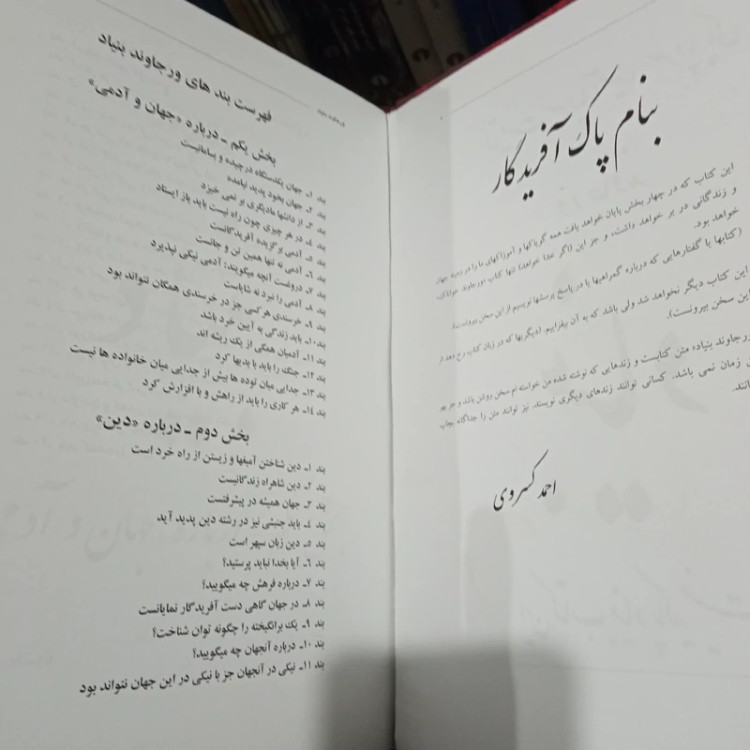 بنام پاک آفریدگار
این کتاب که در چهار بخش پایان خواهد یافت همه گویاکها و آموزاکهای ما را در زمینه جهان
و زندگانی در بر خواهد داشت، و جز این (اگر خدا خواهد) تنها کتاب
خواهد بود.
(کتابها یا گفتارهایی که درباره گمراهیها یا در پاسخ پرسشها نویسیم از این سخن بیرونست).
این کتاب دیگر نخواهد شد ولی باشد که به آن بیفزاییم. (دیگریها که در زبان کتاب رخ دهد از
این سخن بیرونست).
ورجاوند بنیاد» متن کتابست و زندهایی که نوشته شده من خواسته ام سخن روشن باشد و جز بهر
زمان نمی باشد. کسانی توانند زندهای دیگری نویسند. نیز توانند متن را جداگانه بچاپ
احمد کسروی
فهرست بند های ورجاوند بنیاد
بخش یکم ـ درباره «جهان و آدمی»
بند ۱ـ جهان یکدستگاه درچیده و بسامانیست
بند ۲ـ جهان بخود پدید نیامده
بند ۳ـ از دانشها مادیگری بر نمی خیزد
بند ٤ـ در هر چیزی چون راه نیست باید باز ایستاد
بند ۵ـ آدمی برگزیده آفریدگانست
بند ٦ـ آدمی نه تنها همین تن و جانست
بند ۷ـ دروغست آنچه میگویند: آدمی نیکی نپذیرد
بند ۸ـ آدمی را نبرد نه شایاست
بند ۹ـ خرسندی هر کسی جز در خرسندی همگان نتواند بود
بند ۱۰ـ باید زندگی به آیین خرد باشد
بند ۱۱ـ آدمیان همگی از یک ریشه اند.
بند ۱۲ـ جنگ را باید با بدیها کرد
بند ۱۳ـ جدایی میان توده ها بیش از جدایی میان خانواده ها نیست
بند ۱٤ـ هر کاری را باید از راهش و با افزارش کرد
بخش دوم ـ درباره «دین»
بند ۱ـ دین شناختن آمیغها و زیستن از راه خرد است
بند ۲ـ دین شاهراه زندگانیست
بند ۳ـ جهان همیشه در پیشرفتست
بند ٤ـ باید جنبشی نیز در رشته دین پدید آید
بند ۵ـ دین زبان سپهر است
بند ٦ـ آیا بخدا نباید پرستید؟
بند ۷ـ درباره فرهش چه میگویید؟
بند ۸ـ در جهان گاهی دست آفریدگار نمایانست
بند ۹ـ یک برانگیخته را چگونه توان شناخت؟
بند ۱۰ـ درباره آنجهان چه میگویید؟
بند ۱۱ـ نیکی در آنجهان جز با نیکی در این جهان نتواند بود